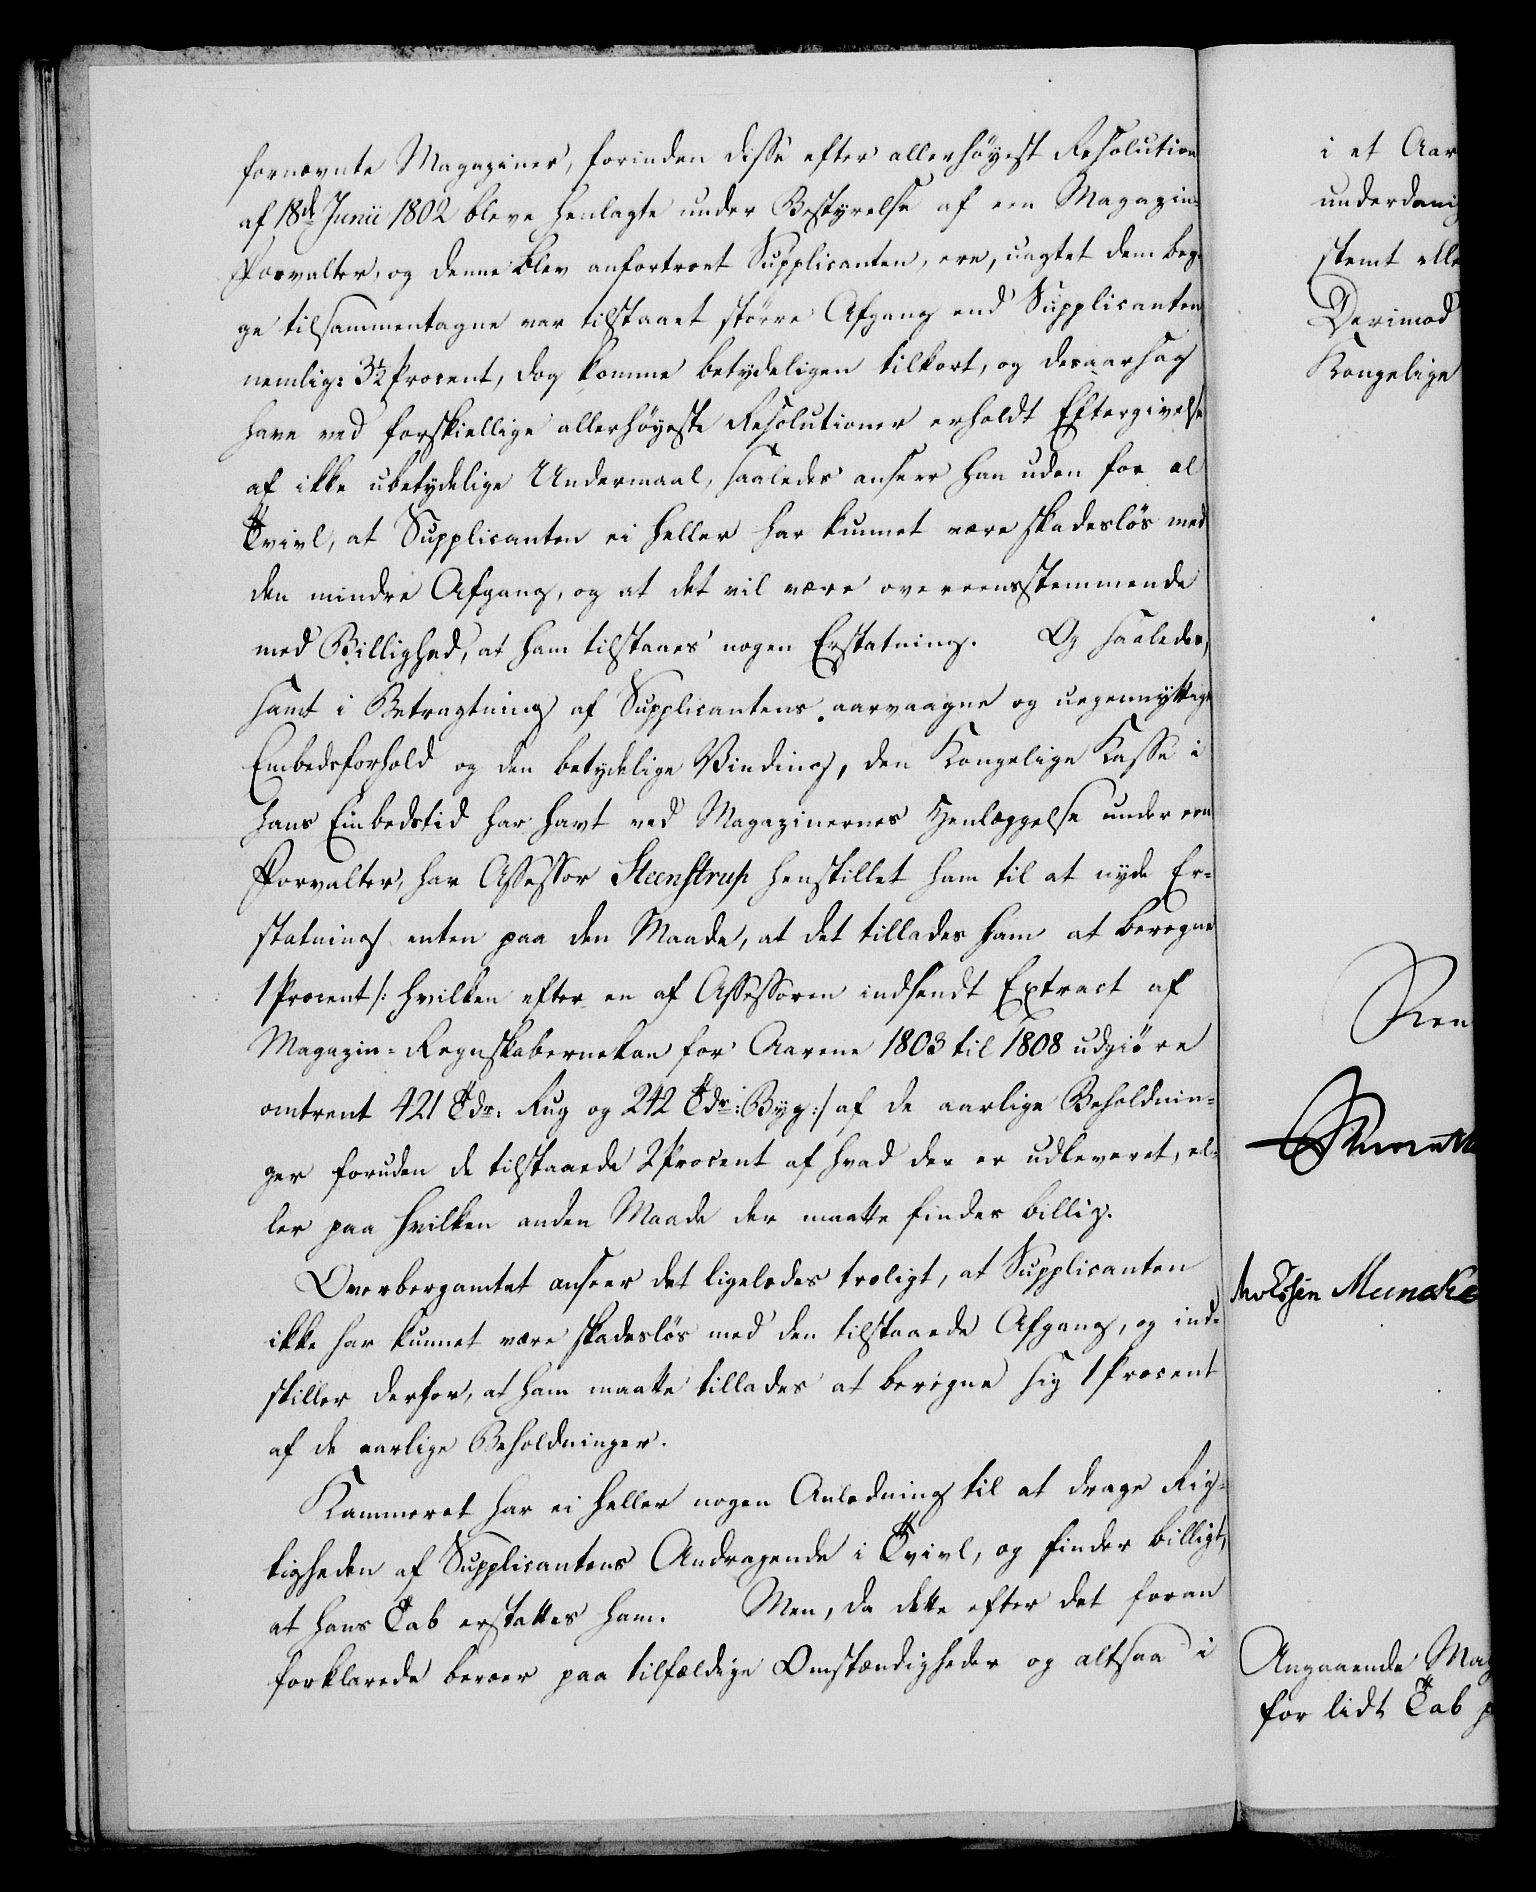 fornævnte Magaziner, forinden disse efter allerhøyest Resolution
af 18de Junii 1802 bleve henlagte under Bestyrelse af een Magazin-
Forvalter, og denne blev anfortroet Supplicanten, ere, uagtet dem beg-
ge tilsammentagne var tilstaaet större Afgang end Supplicanten
nemlig: 3½ Procent, dog komme betydeligen tilkort, og desaarsag
have ved forskiellige allerhøyeste Resolutioner erholdt Eftergivelse
af ikke ubetydelige Undermaal, saaledes anseer han uden for al
Tvivl, at Supplicanten ei heller har kunnet være skadeslös med
den mindre Afgang, og at det vil være overeensstemmende
med Billighed, at ham tilstaaes nogen Erstatning. Og saaledes,
samt i Betragtning af Supplicantens aarvaagne og uegennyttige
Embedsforhold og den betydelige Vinding, den Kongelige Kasse i
hans Embedstid har havt ved Magazinernes Henlæggelse under een
Forvalter, har Assessor Steenstrup henstillet ham til at nyde Er-
statning enten paa den Maade, at det tillades ham at beregne
1 Procent /: hvilken efter en af Assessoren indsendt Extract af
Magazin-Regnskaberne kan for Aarene 1803 til 1808 udgiöre
omtrent 421 Tdr: Rug og 242 Tdr: Byg :/ af de aarlige Beholdnin-
ger foruden de tilstaaede 2 Procent af hvad der er udleveret, el-
ler paa hvilken anden Maade der maatte findes billig.
Overbergamtet anseer det ligeledes troligt, at Supplicanten
ikke har kunnet være skadeslös med den tilstaaede Afgang, og ind-
stiller derfor, at ham maatte tillades at beregne sig 1 Procent
af de aarlige Beholdninger.
Kammeret har ei heller nogen Anledning til at drage Rig-
tigheden af Supplicantens Andragende i Tvivl, og finder billigt,
at hans Tab erstattes ham. Men, da dette efter det foran
forklarede beroer paa tilfældige Omstændigheder og altsaa i
i et Aar
underdanig
stemt elle
Derimod
Kongelige
Ren
Muncke
Angaaende Mag
for lidt Tab p